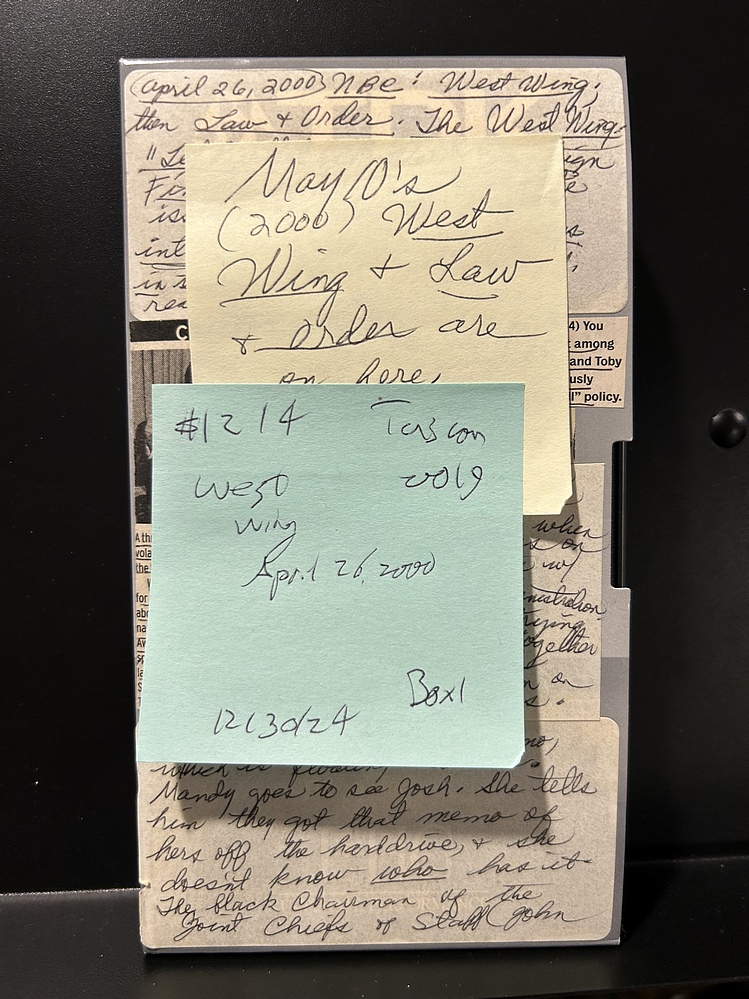 (April 26, 2000) NBC: West Wing,
then Law & Order. The West Wing-
"Le
ign
Fi
e
is
int
s
in s
rea
May 10's
(2000) West
Wing & Law
& Order are
on here,
C
4) You
among
and Toby
usly
l" policy.
#1214
2019
West
Wing
April 26, 2000
Box 1
12/30/24
A th
vola
the
for
abo
na
when
s on
w/
rying
ogether
on
s.
mo,
which is
Mandy goes to see Josh. She tells
him they got that memo of
hers off the harddrive, & she
doesn't know who has it
The black Chairman of the
Joint Chiefs of Staff (John